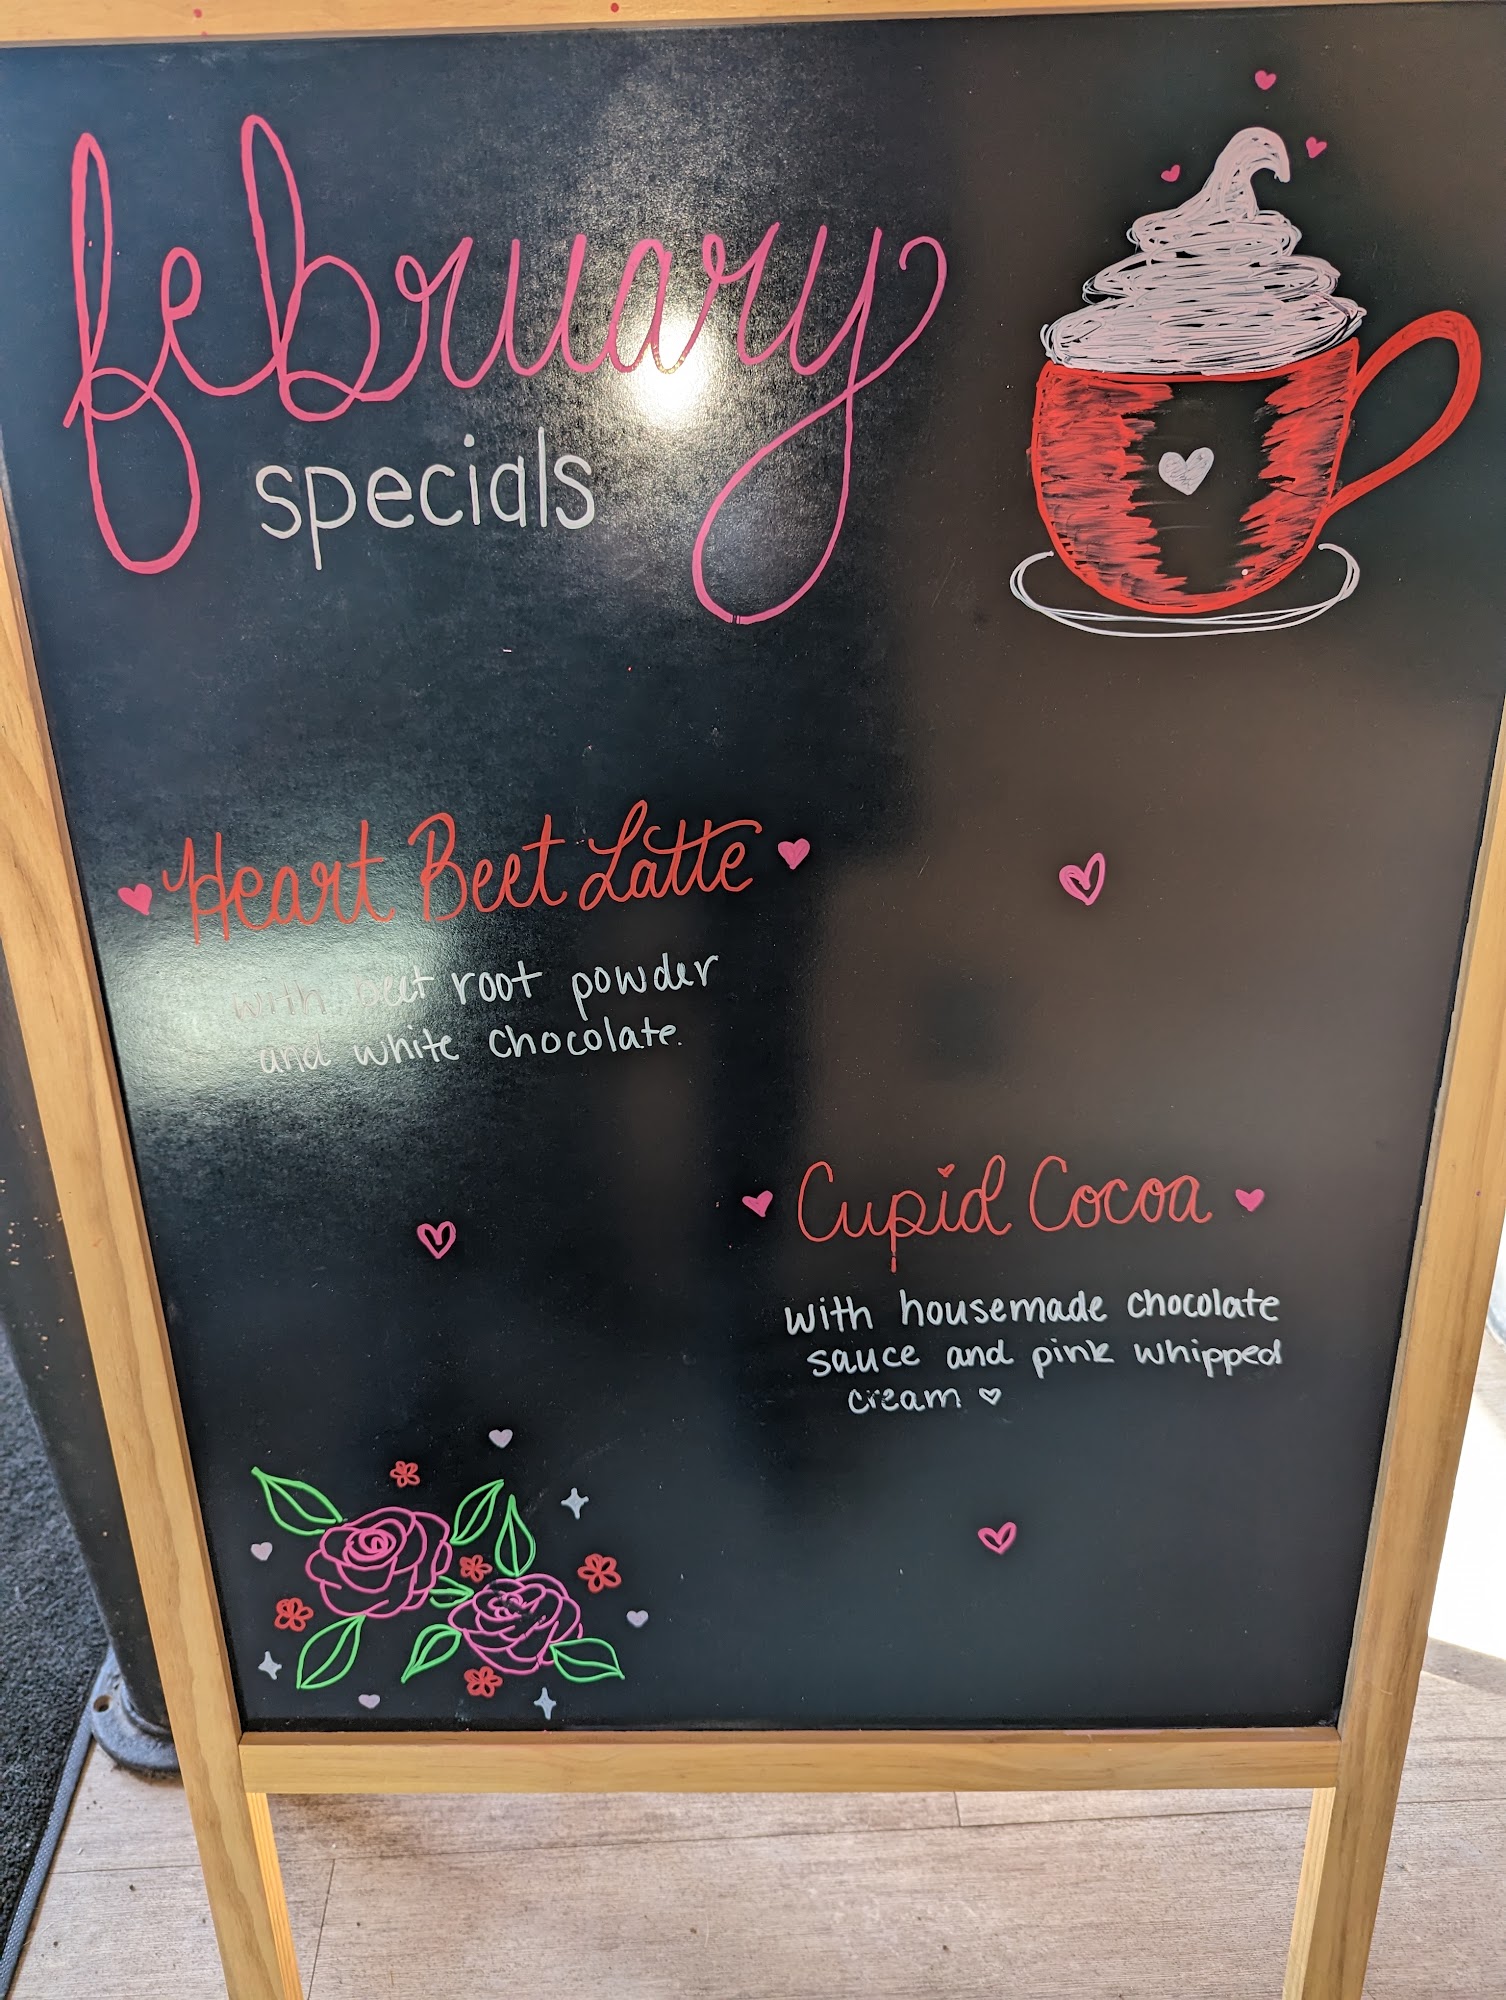 february
specials
Heart Beet Latte
with beet root powder
and white chocolate.
Cupid Cocoa
with housemade chocolate
sauce and pink whipped
cream